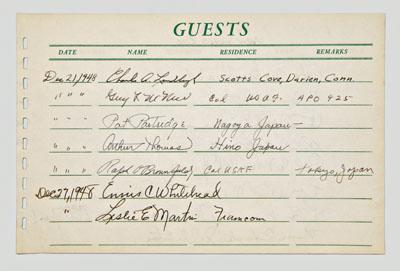 GUESTS
DATE NAME RESIDENCE REMARKS
Dec 21, 1948 Charles A. Lindbergh Scotts Cove, Darien, Conn.
" " " Guy Col USAF APO 925
" " Pat Partridge Nagoya Japan
" " Arthur Thomas Hino Japan
" " Ralph Col USAF Tokyo, Japan
Dec 27, 1948 Ennis C Whitehead
" Leslie E Martin